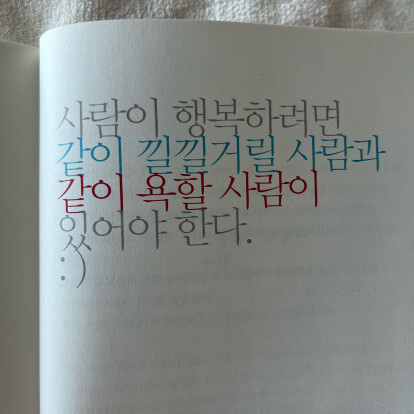 사람이 행복하려면
같이 낄낄거릴 사람과
같이 욕할 사람이
있어야 한다.
:)